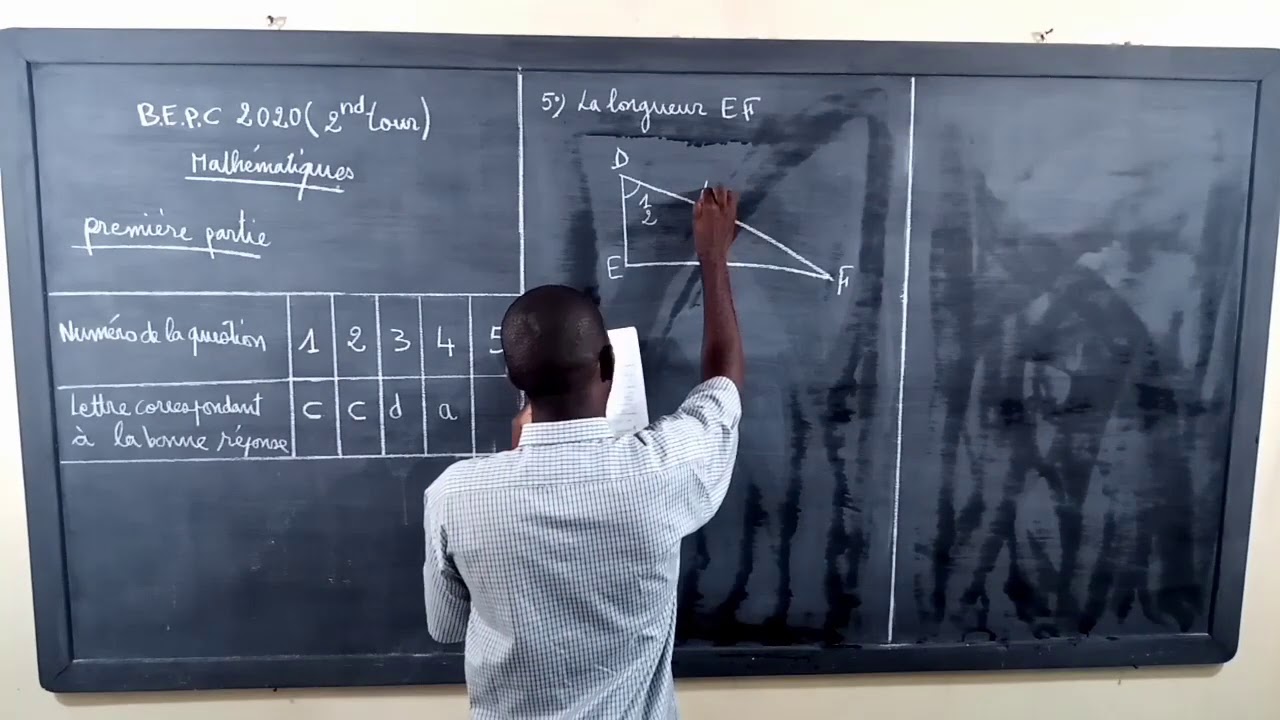 B.E.P.C 2020 (2nd tour)
Mathématiques
première partie
Numéro de la question 1 2 3 4 5
Lettre correspondant c c d a
à la bonne réponse
5°) La longueur EF
D
1
2
E
F